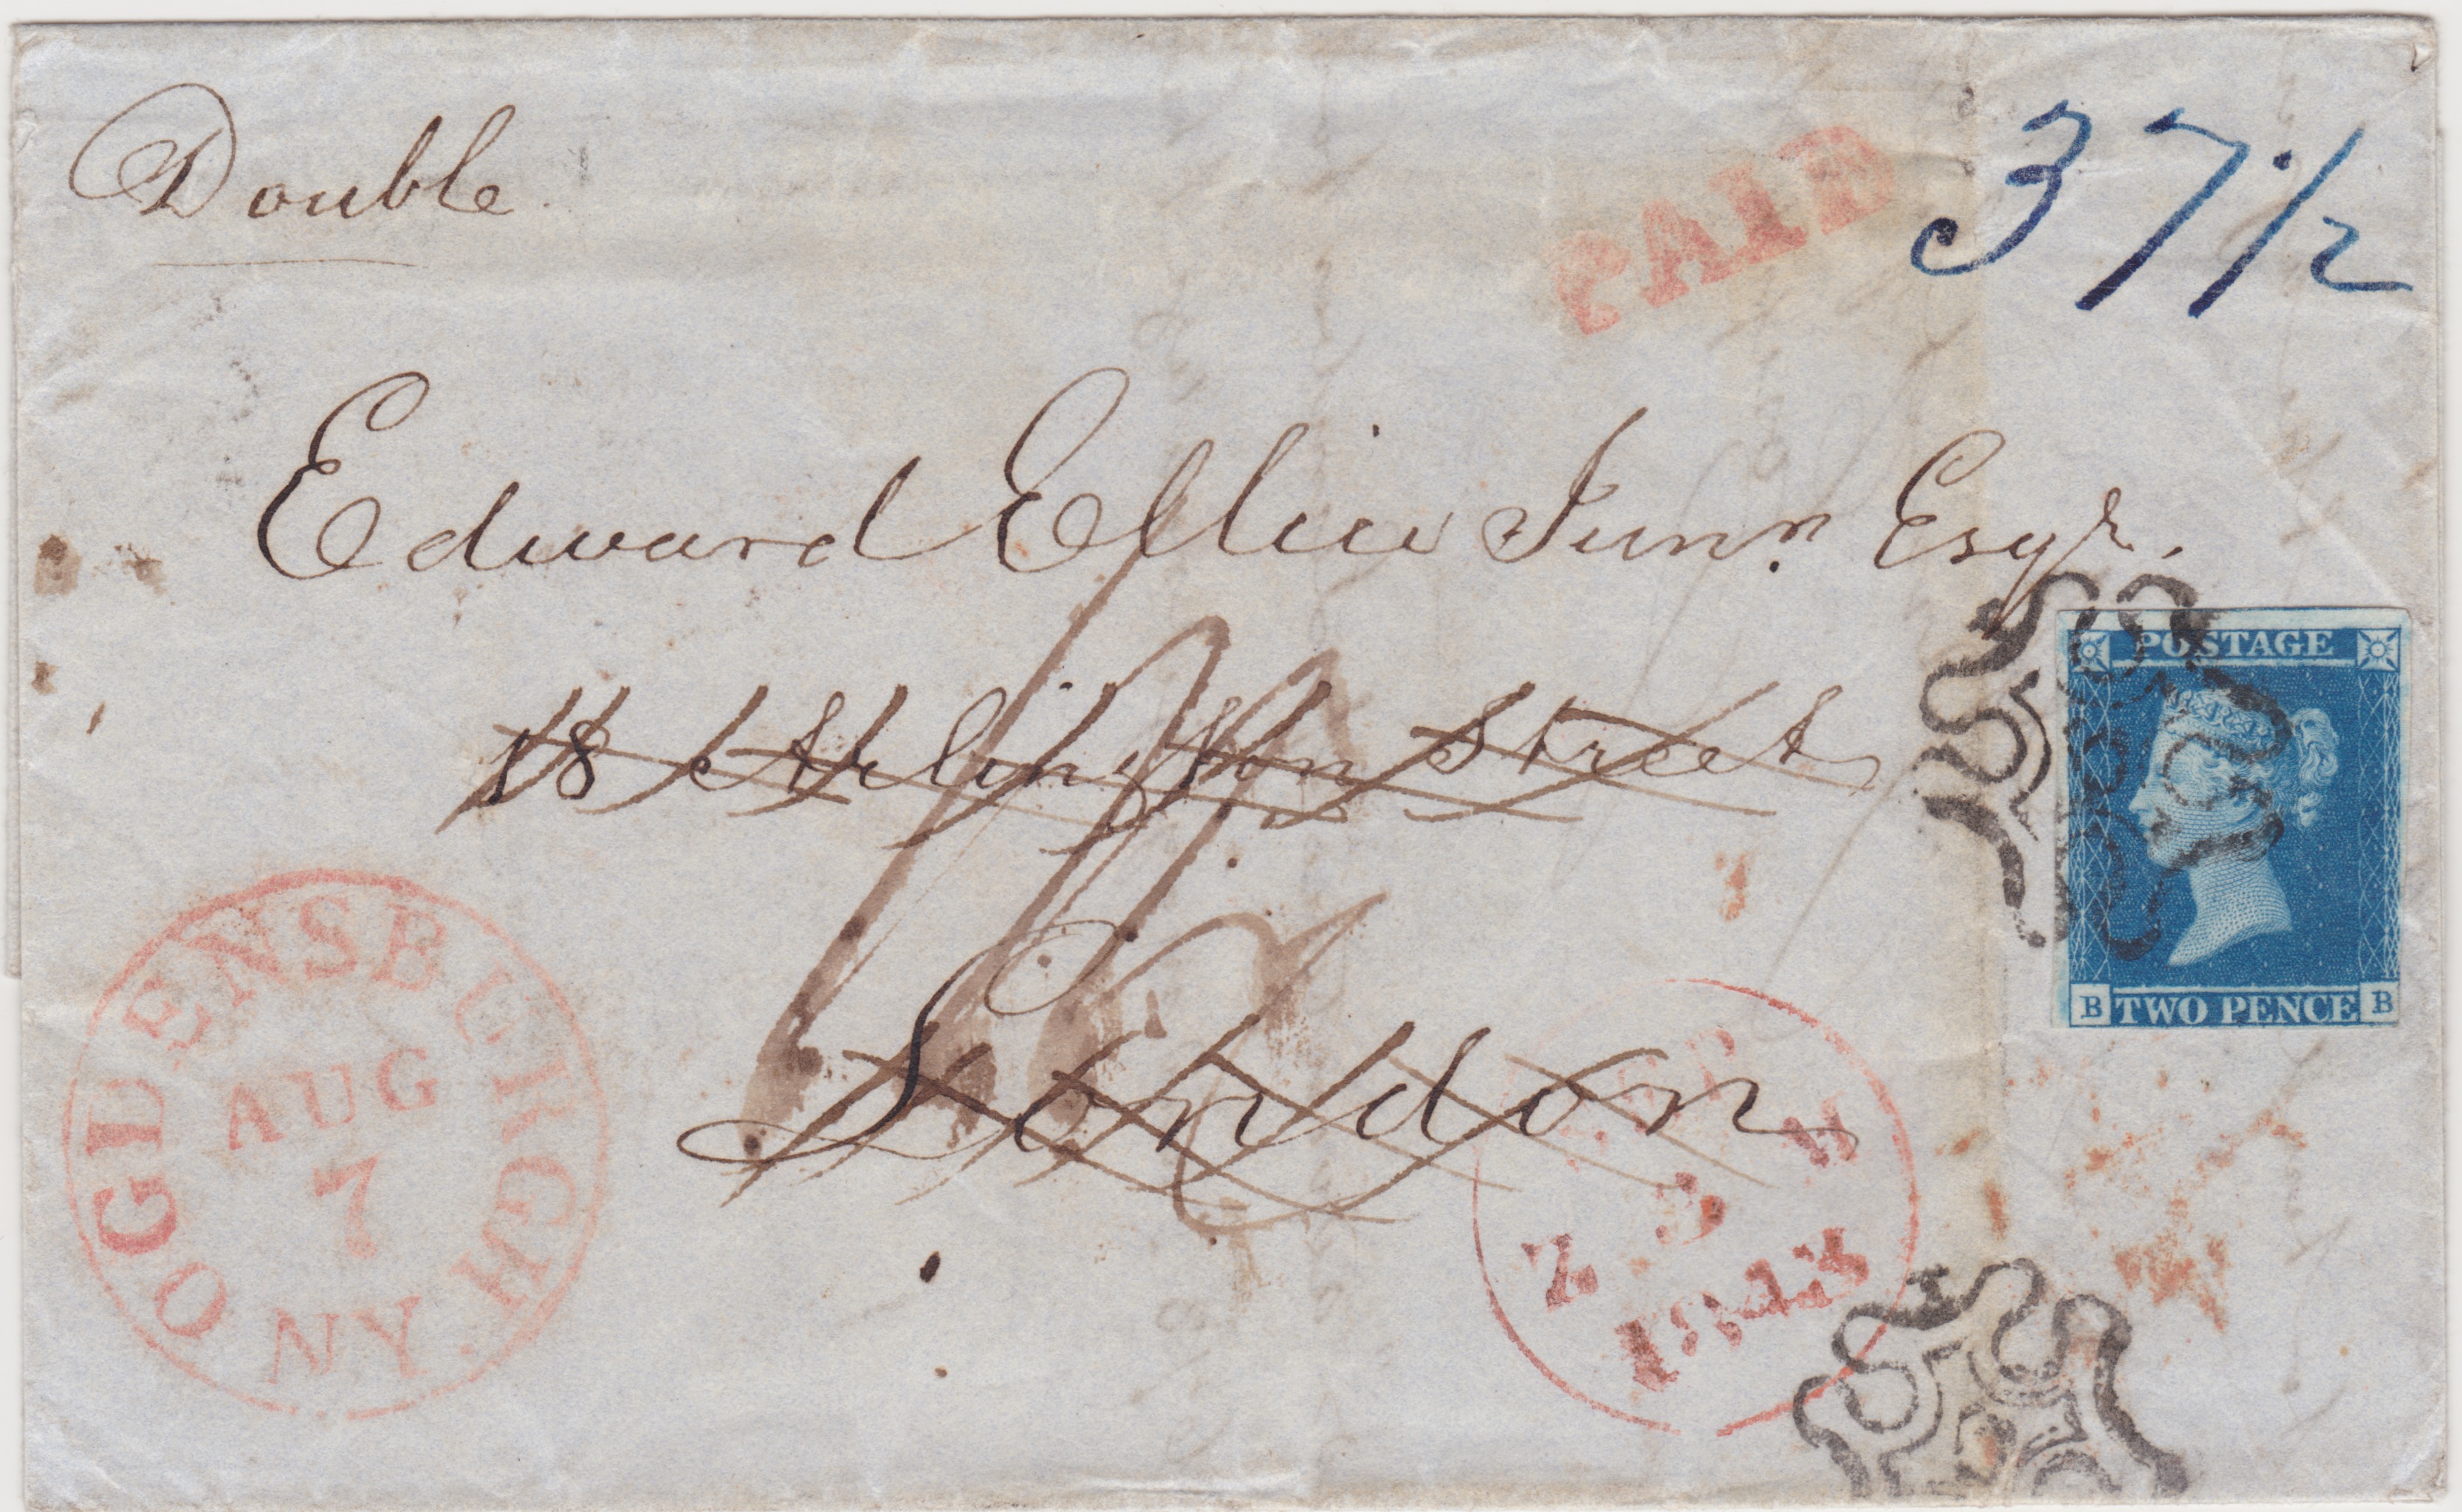 Double
PAID
37 1/2
Edward Ellice Junr. Esqr.
18 Arlington Street
London
OGDENSBURGH
AUG
7
NY
POSTAGE
B TWO PENCE B
1843